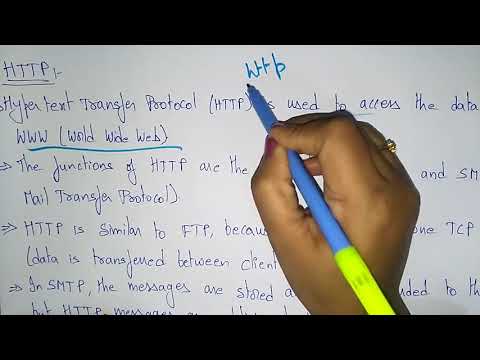 HTTP:-
http
Hypertext Transfer Protocol (HTTP) is used to access the data
WWW (World Wide Web)
⇒ The functions of HTTP are the and SM
Mail Transfer Protocol).
⇒ HTTP is similar to FTP, becau one TCP
(data is transferred between client
⇒ In SMTP, the messages are stored a ded to th
but HTTP messages are